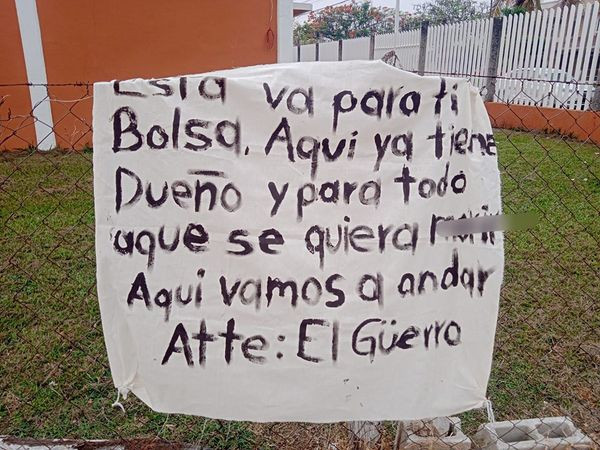 Esta va para ti
Bolsa. Aqui ya tiene
Dueño y para todo
aque se quiera
Aqui vamos a andar
Atte: El Güerro